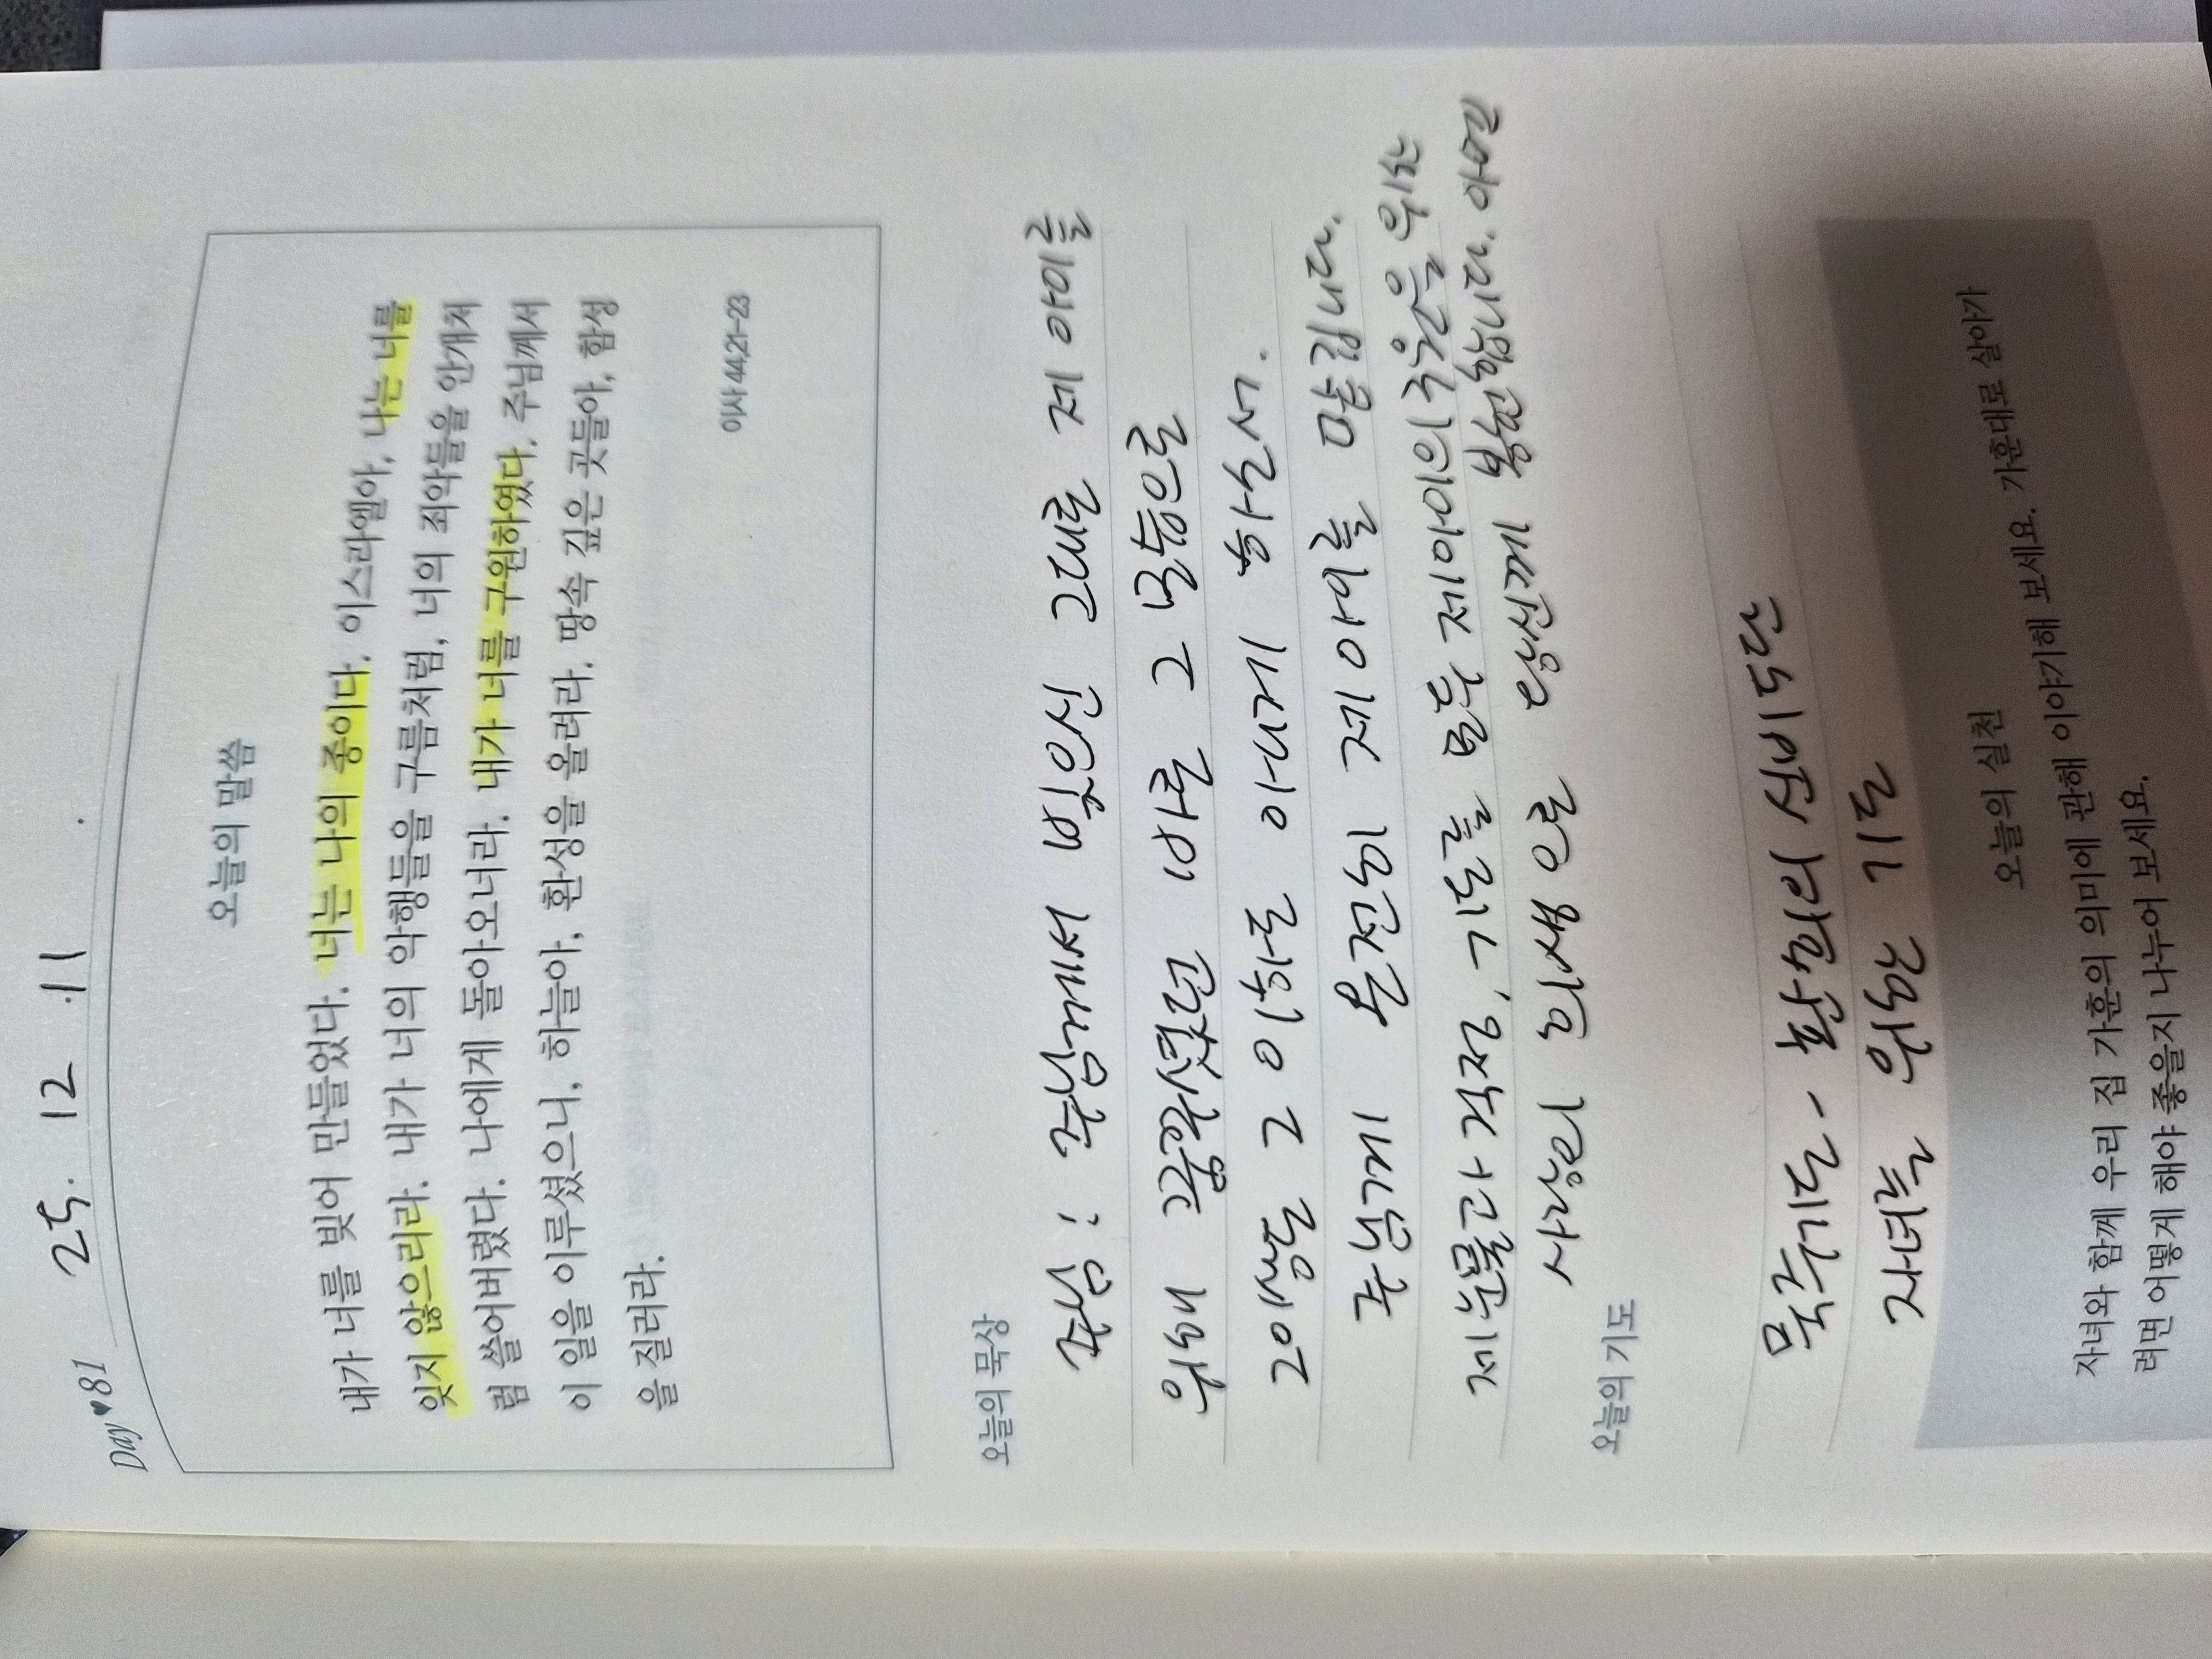 Day♥81 25. 12. 11
오늘의 말씀
내가 너를 빚어 만들었다. 너는 나의 종이다. 이스라엘아, 나는 너를
잊지 않으리라. 내가 너의 악행들을 구름처럼, 너의 죄악들을 안개처
럼 쓸어버렸다. 나에게 돌아오너라. 내가 너를 구원하였다. 주님께서
이 일을 이루셨으니, 하늘아, 환성을 올려라. 땅속 깊은 곳들아, 함성
을 질러라.
이사 44,21-23
오늘의 묵상
주님! 주님께서 빚으신 그대로 제 아이를
위해 꿈꾸셨던 바로 그 모습으로
20 그 이하로 아니게 하소서.
주님께 온전히 제 아이를 맡깁니다.
제 눈물과 걱정, 기도를 모두 제 아이의 구원을 위한
사랑의 희생으로 당신께 봉헌합니다. 아멘
오늘의 기도
묵주기도 - 환희의 신비 5단
자녀를 위한 기도
오늘의 실천
자녀와 함께 우리 집 가훈의 의미에 관해 이야기해 보세요. 가훈대로 살아가
려면 어떻게 해야 좋을지 나누어 보세요.